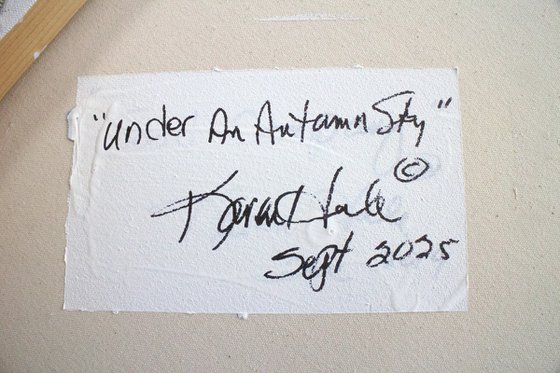 "under An Autumn Sky"
©
Karen Hale
Sept 2025